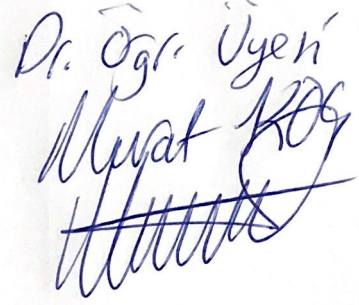 Dr. Öğr. Üyesi
Murat KOÇ